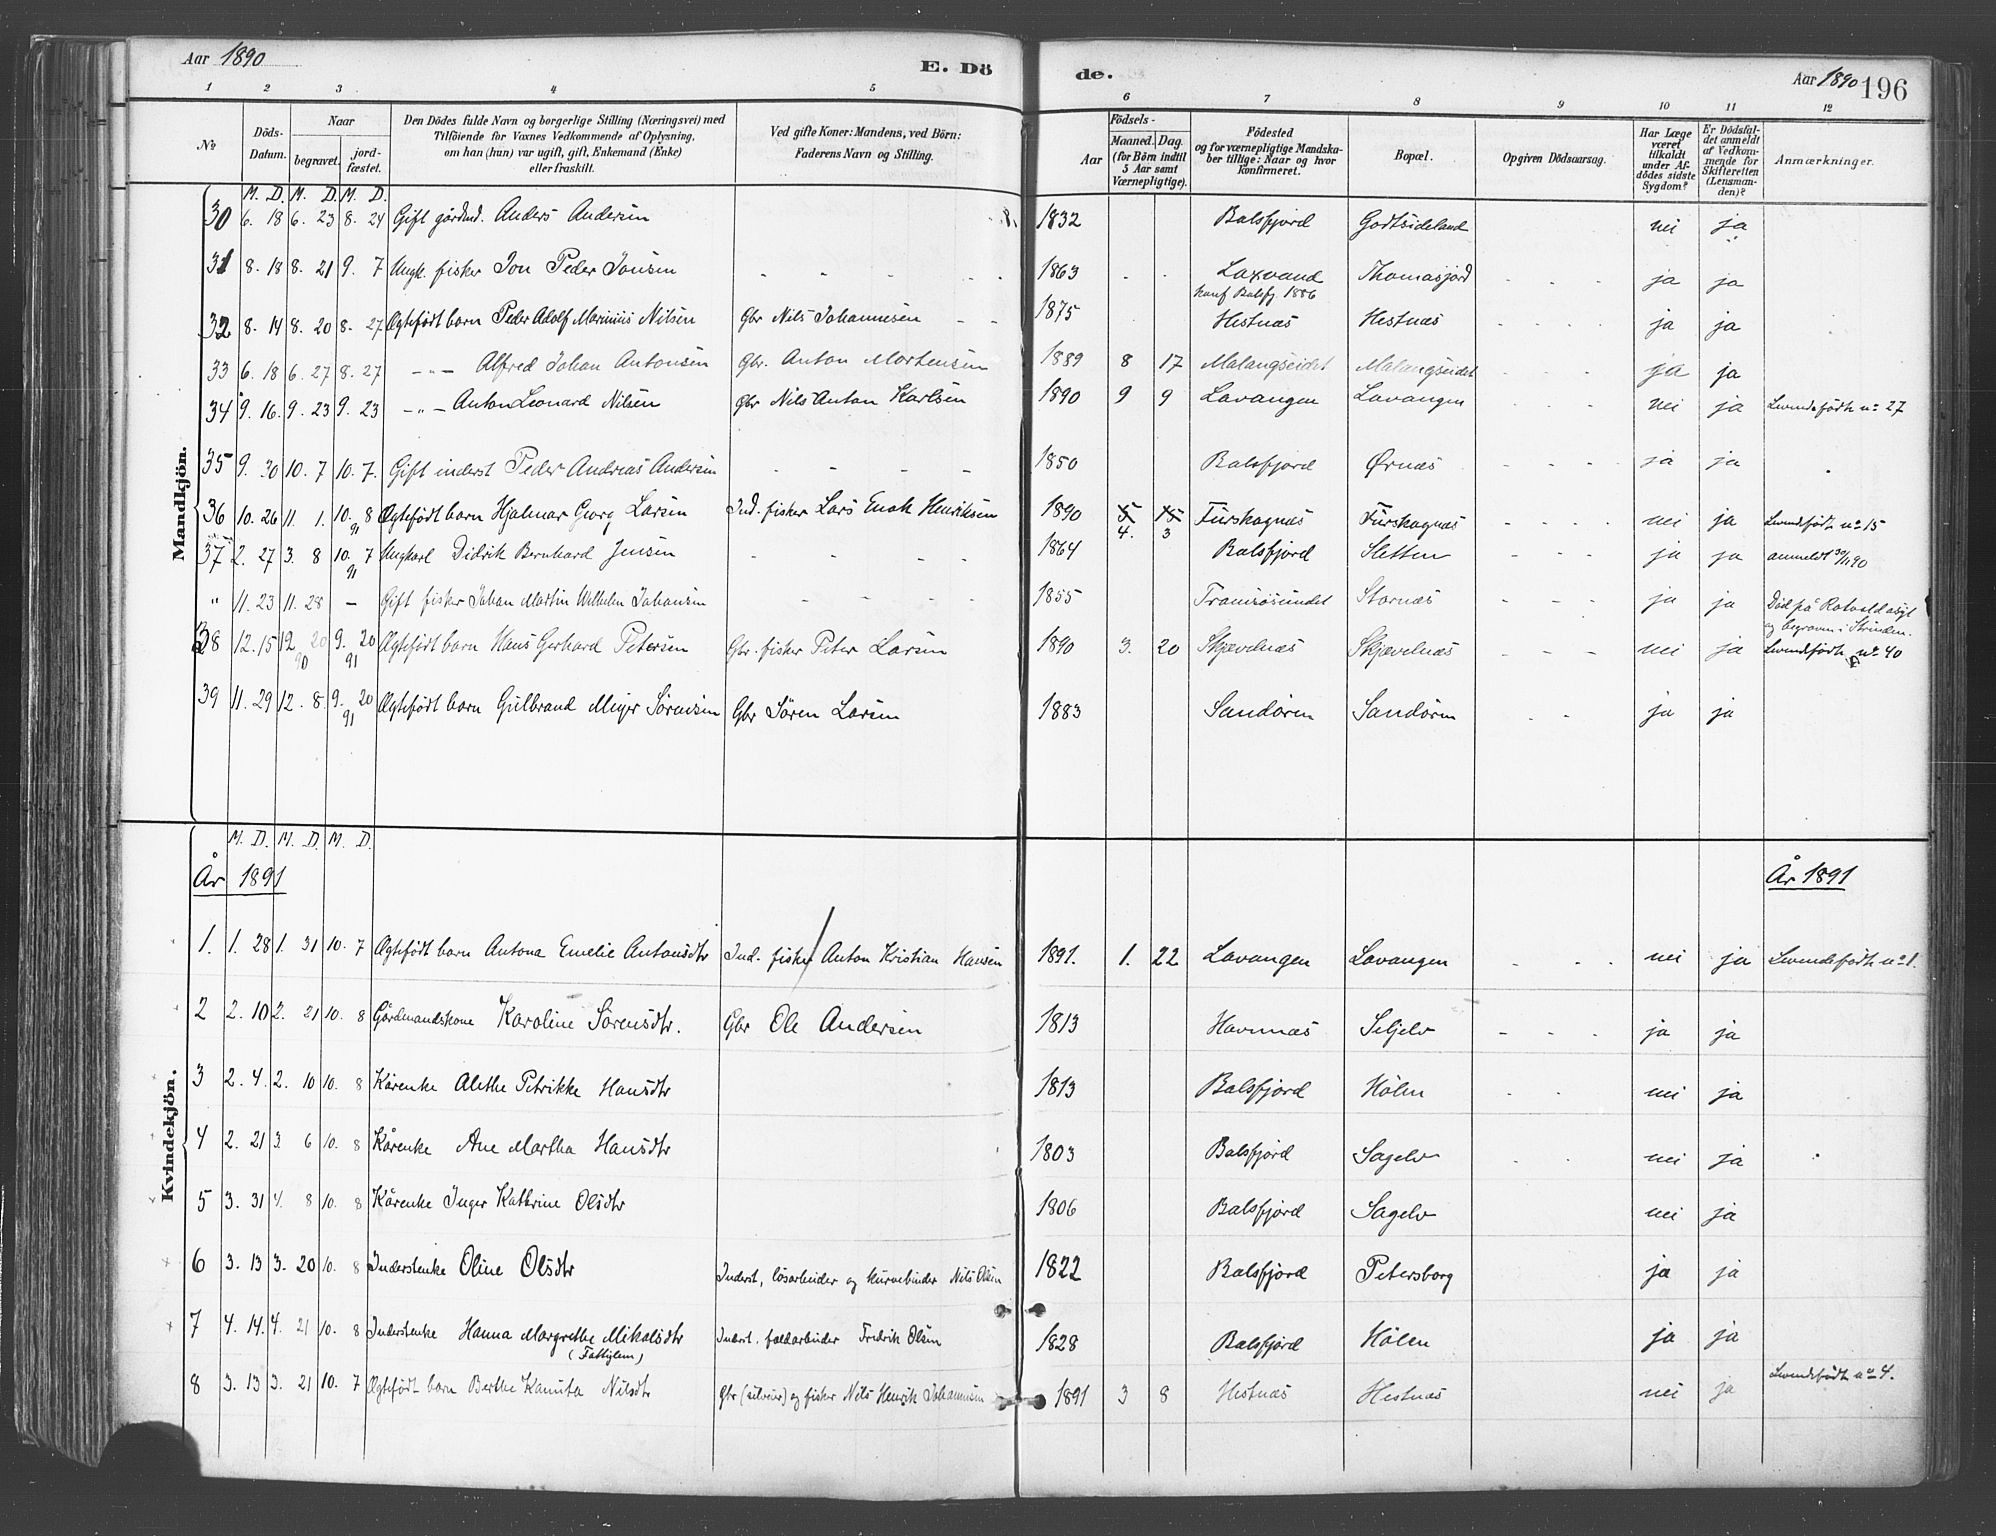 Aar 1890 E. Dö de. Aar 1890 196
1 2 3 4 5 6 7 8 9 10 11 12
No Döds-Datum. Naar begravet. jord-fæstet. Den Dödes fulde Navn og borgerlige Stilling (Næringsvei) med Tilföiende for Voxnes Vedkommende af Oplysning, om han (hun) var ugift, gift, Enkemand (Enke) eller fraskilt. Ved gifte Koner: Mandens, ved Börn: Faderens Navn og Stilling. Födsels- Aar Maaned. Dag. (for Börn indtil 5 Aar samt Værnepligtige). Födested og for værnepligtige Mandskaber tillige: Naar og hvor konfirmeret. Bopæl. Opgiven Dödsaarsag. Har Læge været tilkaldt under Afdödes sidste Sygdom? Er Dödsfaldet anmeldt af Vedkommende for Skifteretten (Lensmanden)? Anmærkninger.
Mandkjön.
M. D. M. D. M. D.
30 6. 18 6. 23 8. 24 Gift gårdmd. Anders Andersen 1832 Balsfjord Godtsideland nei ja
31 8. 18 8. 21 9. 7 Ungk. fisker Jon Peder Jonsen 1863 Laxvand Thomasjord ja ja
konf Balsfj. 1886
32 8. 14 8. 20 8. 27 Ægtefödt barn Peder Adolf Marinius Nilsen Gbr Nils Johannesen 1875 Hestnæs Hestnæs ja ja
33 6. 18 6. 27 8. 27 -"- Alfred Johan Antonsen Gbr. Anton Mortensen 1889 8 17 Malangseidet Malangseidet ja ja
34 9. 16. 9. 23 9. 23 -"- Anton Leonard Nilsen Gbr Nils Anton Karlsen 1890 9 9 Lavangen Lavangen nei ja Levendefödte no 27
35 9. 30 10. 7 10. 7. Gift inderst Peder Andreas Andersen 1850 Balsfjord Ørnæs ja ja
36 10. 26 11. 1. 10. 8 Ægtefödt barn Hjalmar Georg Larsen Ind. fisker Lars Enok Henriksen 1890 5 15 Furskognæs Furskognæs nei ja Levendefödte no 15
91 4. 3
37 2. 27 3. 8 10. 7 Ungkarl Didrik Bernhard Jensen 1864 Balsfjord Sletten ja ja anmeldt 30/11 90
91
" 11. 23 11. 28 - Gift fisker Johan Martin Wilhelm Johansen 1855 Tromsösundet Stornæs ja ja Död på Rotvold asyl
og begraven i Strinden.
38 12. 15 12 20 9. 20 Ægtefödt barn Hans Gerhard Petersen Gbr. fisker Peter Larsen 1890 3. 20 Skjævelnæs Skjævelnæs nei ja Levendefödte no 40
90 91
39 11. 29 12. 8. 9. 20 Ægtefödt barn Gulbrand Meyer Sörensen Gbr Sören Larsen 1883 Sandören Sandören ja ja
91
Kvindekjön.
M. D. M. D. M. D.
År 1891 År 1891
1. 1. 28 1. 31 10. 7 Ægtefödt barn Antona Emelie Antonsdtr Ind. fisker Anton Kristian Hansen 1891. 1. 22 Lavangen Lavangen nei ja Levendefödte no 1.
2 2. 10 2. 21 10. 8 Gårdmandskone Karoline Sörensdtr. Gbr Ole Andersen 1813 Havnnæs Seljelv ja ja
3 2. 4. 2. 10 10. 8 Kårenke Alethe Petrikke Hansdtr 1813 Balsfjord Hölen nei ja
4 2. 21 3. 6 10. 8 Kårenke Ane Martha Hansdtr 1803 Balsfjord Sagelv nei ja
5 3. 31 4. 8 10. 8 Kårenke Inger Kathrine Olsdtr 1806 Balsfjord Sagelv nei ja
6 3. 13 3. 20 10. 8 Inderstenke Oline Olsdtr Inderst, lösarbeider og kurvebinder Nils Olsen 1822 Balsfjord Petersborg ja ja
7 4. 14. 4. 21 10. 8 Inderstenke Hanna Margrethe Mikalsdtr Inderst. Fredrik Olsen 1828 Balsfjord Hölen ja ja
(Fattiglem)
8 3. 13 3. 21 10. 7 Ægtefödt barn Berthe Kanuta Nilsdtr Gbr (silveier) og fisker Nils Henrik Johannesen 1891 3 8 Hestnæs Hestnæs nei ja Levendefödte no 4.